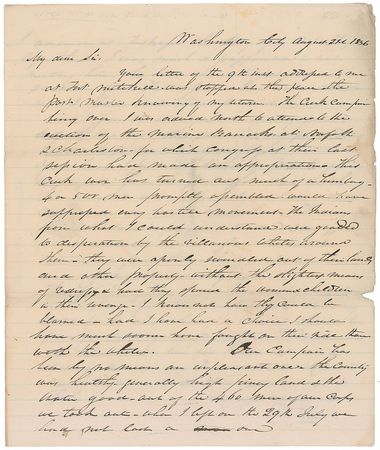 Washington City August 21st 1836
My dear Sir.
Your letter of the 9th inst addressed to me
at Fort Mitchell was stopped at this place the
Post Master knowing of my return. The Creek Campaign
being over I was ordered North to attend to the
erection of the Marine Barracks at Norfolk
& Charleston for which Congress at their last
session have made an appropriation. This
Creek war has turned out much of a humbug
4 or 500 men promptly assembled would have
suppressed every hostile movement. The Indians
from what I could understand were goaded
to desperation by the villainous whites around
them - they were openly swindled out of their lands
and other property without the slightest means
of redress & had they spared the women & children
in their revenge I know not how they could be
blamed - had I have had a choice I should
have much sooner have fought on their side than
with the whites. Our Campaign has
been by no means an unpleasant one - the Country
was healthy generally high piney land & the
water good - out of the 460 men of our Corps
we took out - when I left on the 29th July we
had not lost a one